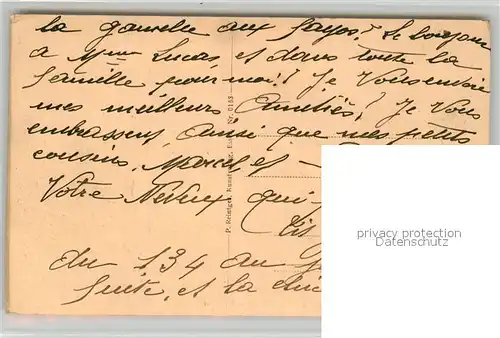 la gamelle aux Le bonjour
a Mme Lucas, et dans toute la
famille pour moi! Je Vous envoie
mes meilleurs Amitiés, Je Vous
embrassent ainsi que mes petits
cousins, Marcel et
Votre Neveux qui
du 134 au
suite, et la
P. Reintges, Nr. 0153
privacy protection
Datenschutz